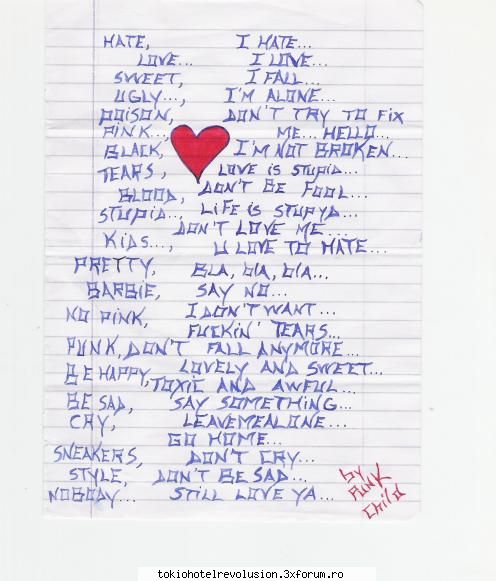 HATE, I HATE...
LOVE... I LOVE...
SWEET, I FALL...
UGLY..., I'M ALONE...
POISON, DON'T TRY TO FIX
PINK... ME... HELLO...
BLACK, I'M NOT BROKEN...
TEARS, LOVE IS STUPID...
BLOOD, DON'T BE FOOL...
STUPID..., LIFE IS STUPYD...
DON'T LOVE ME...
KIDS..., U LOVE TO HATE...
PRETTY, BLA, bLA, bLA...
BARBIE, SAY NO...
NO PINK, I DON'T WANT...
FUCKIN' TEARS...
PUNK, DON'T FALL ANYMORE...
BE HAPPY, LOVELY AND SWEET...
TOXIC AND AWFUL...
BE SAD, SAY SOMETHING...
CRY, LEAVEMEALONE...
GO HOME...
SNEAKERS, DON'T CRY...
STYLE, DON'T BE SAD...
NOBODY... STILL LOVE YA...
by
PUNK
Child
tokiohotelrevolusion.3xforum.ro